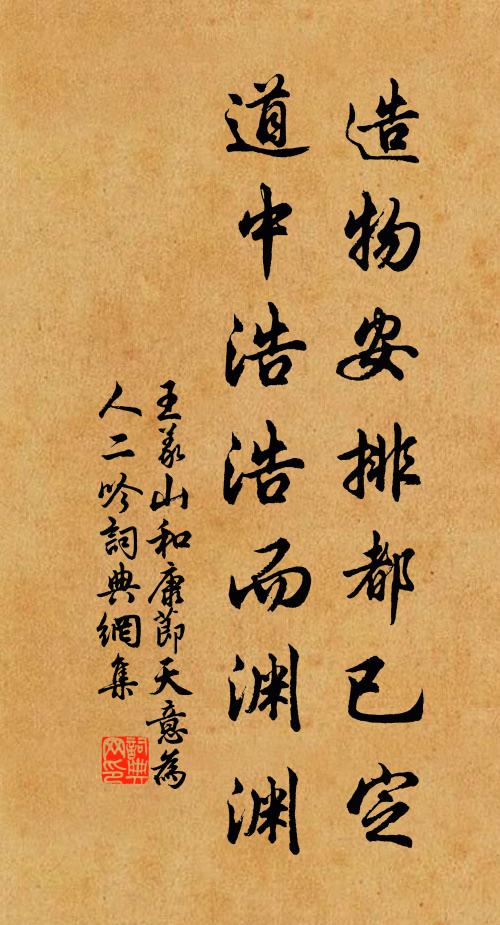 造物安排都已定
道中浩浩而渊渊
王义山和康節天意為
人二吟詞典網集
詞典網印